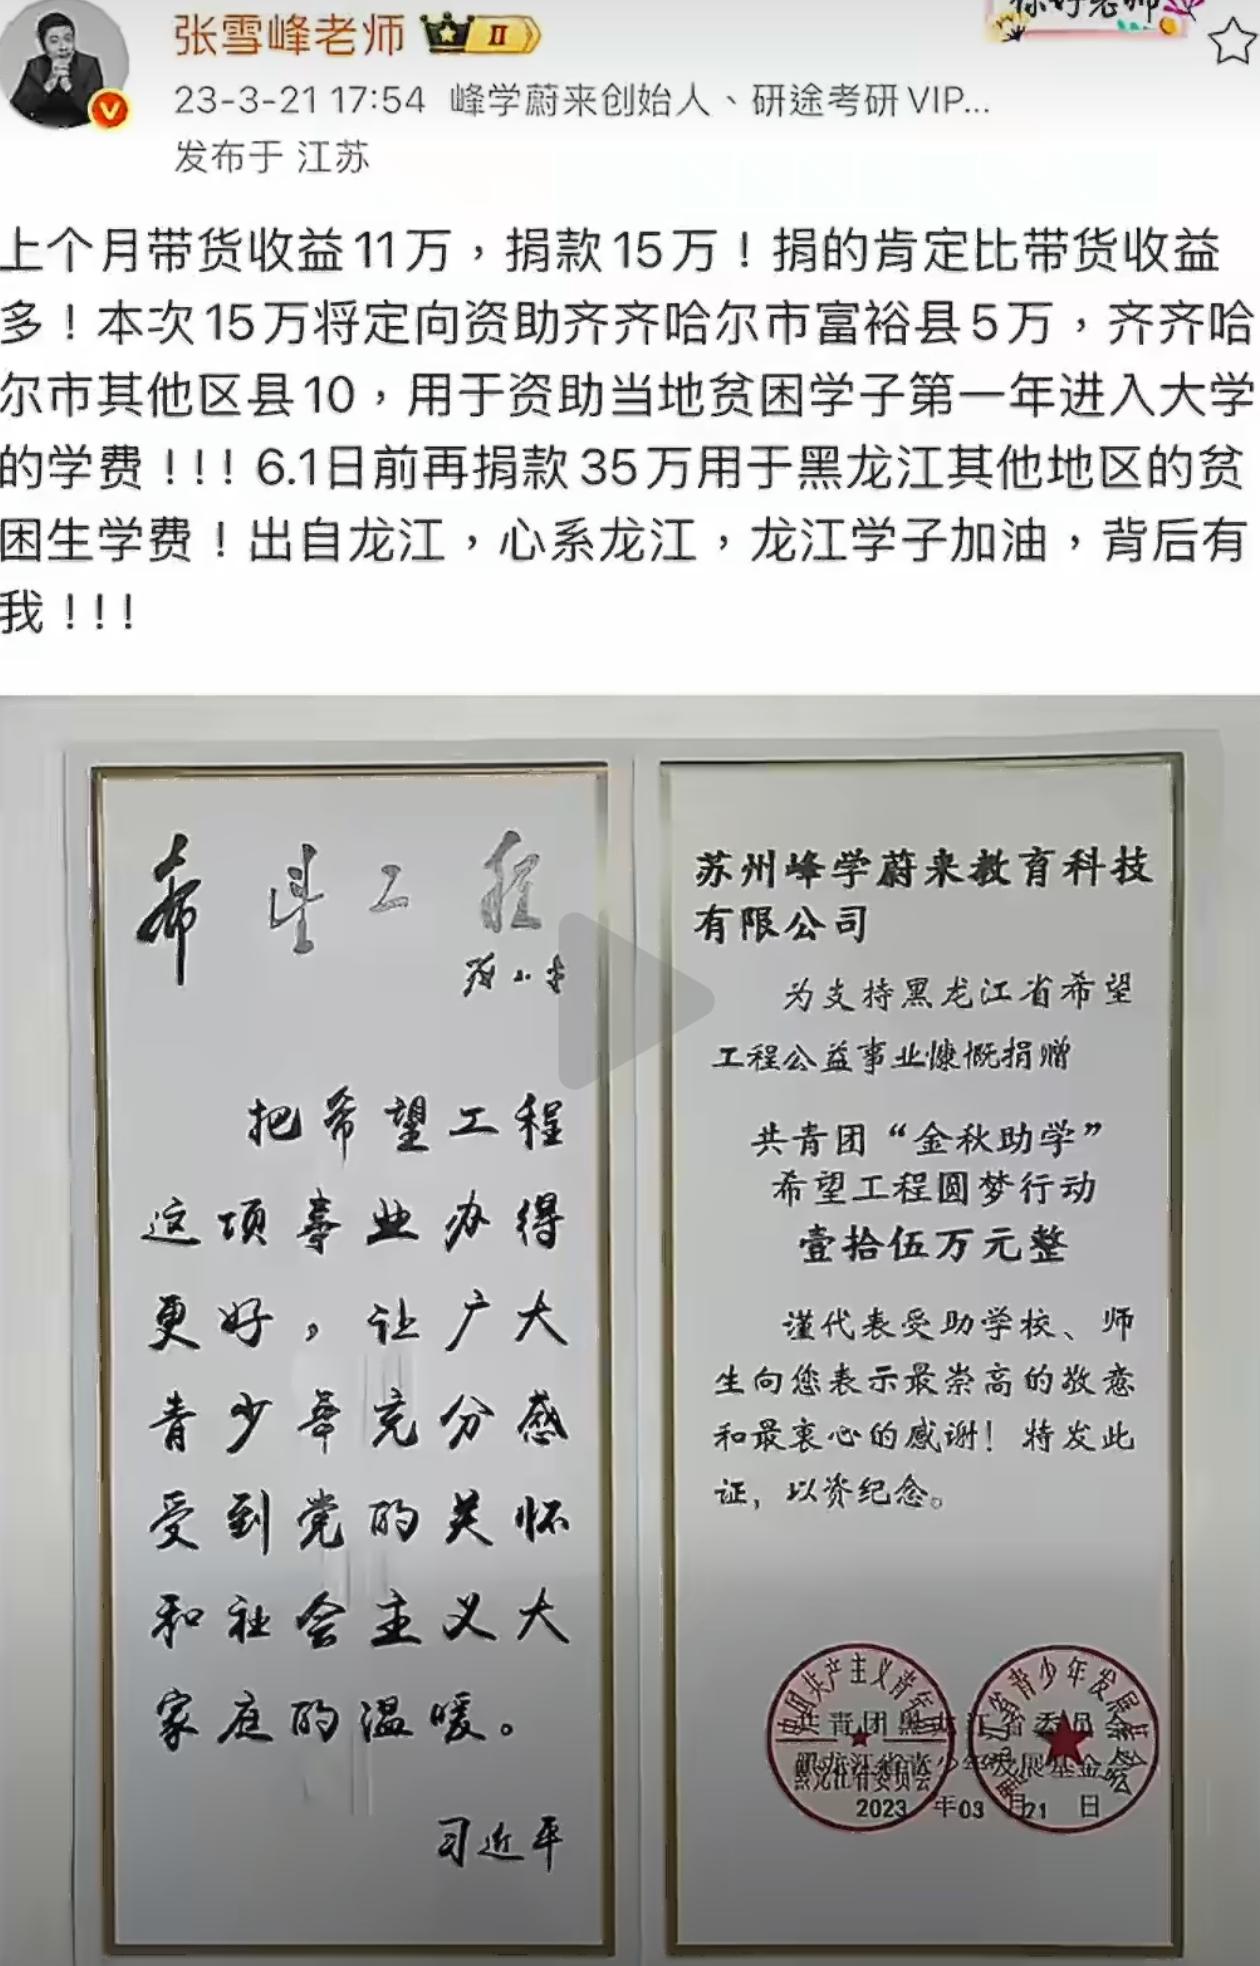 张雪峰老师 II
你好老师
23-3-21 17:54 峰学蔚来创始人、研途考研VIP...
发布于 江苏
上个月带货收益11万，捐款15万！捐的肯定比带货收益
多！本次15万将定向资助齐齐哈尔市富裕县5万，齐齐哈
尔市其他区县10，用于资助当地贫困学子第一年进入大学
的学费！！！6.1日前再捐款35万用于黑龙江其他地区的贫
困生学费！出自龙江，心系龙江，龙江学子加油，背后有
我！！！
希望工程
邓小平
把希望工程
这项事业办得
更好，让广大
青少年充分感
受到党的关怀
和社会主义大
家庭的温暖。
习近平
苏州峰学蔚来教育科技
有限公司
为支持黑龙江省希望
工程公益事业慷慨捐赠
共青团“金秋助学”
希望工程圆梦行动
壹拾伍万元整
谨代表受助学校、师
生向您表示最崇高的敬意
和最衷心的感谢！特发此
证，以资纪念。
共青团黑龙江省委员会
黑龙江省青少年发展基金会
2023 年03 月21 日
中国共产主义青年团
黑龙江省委员会
黑龙江省青少年发展基金会